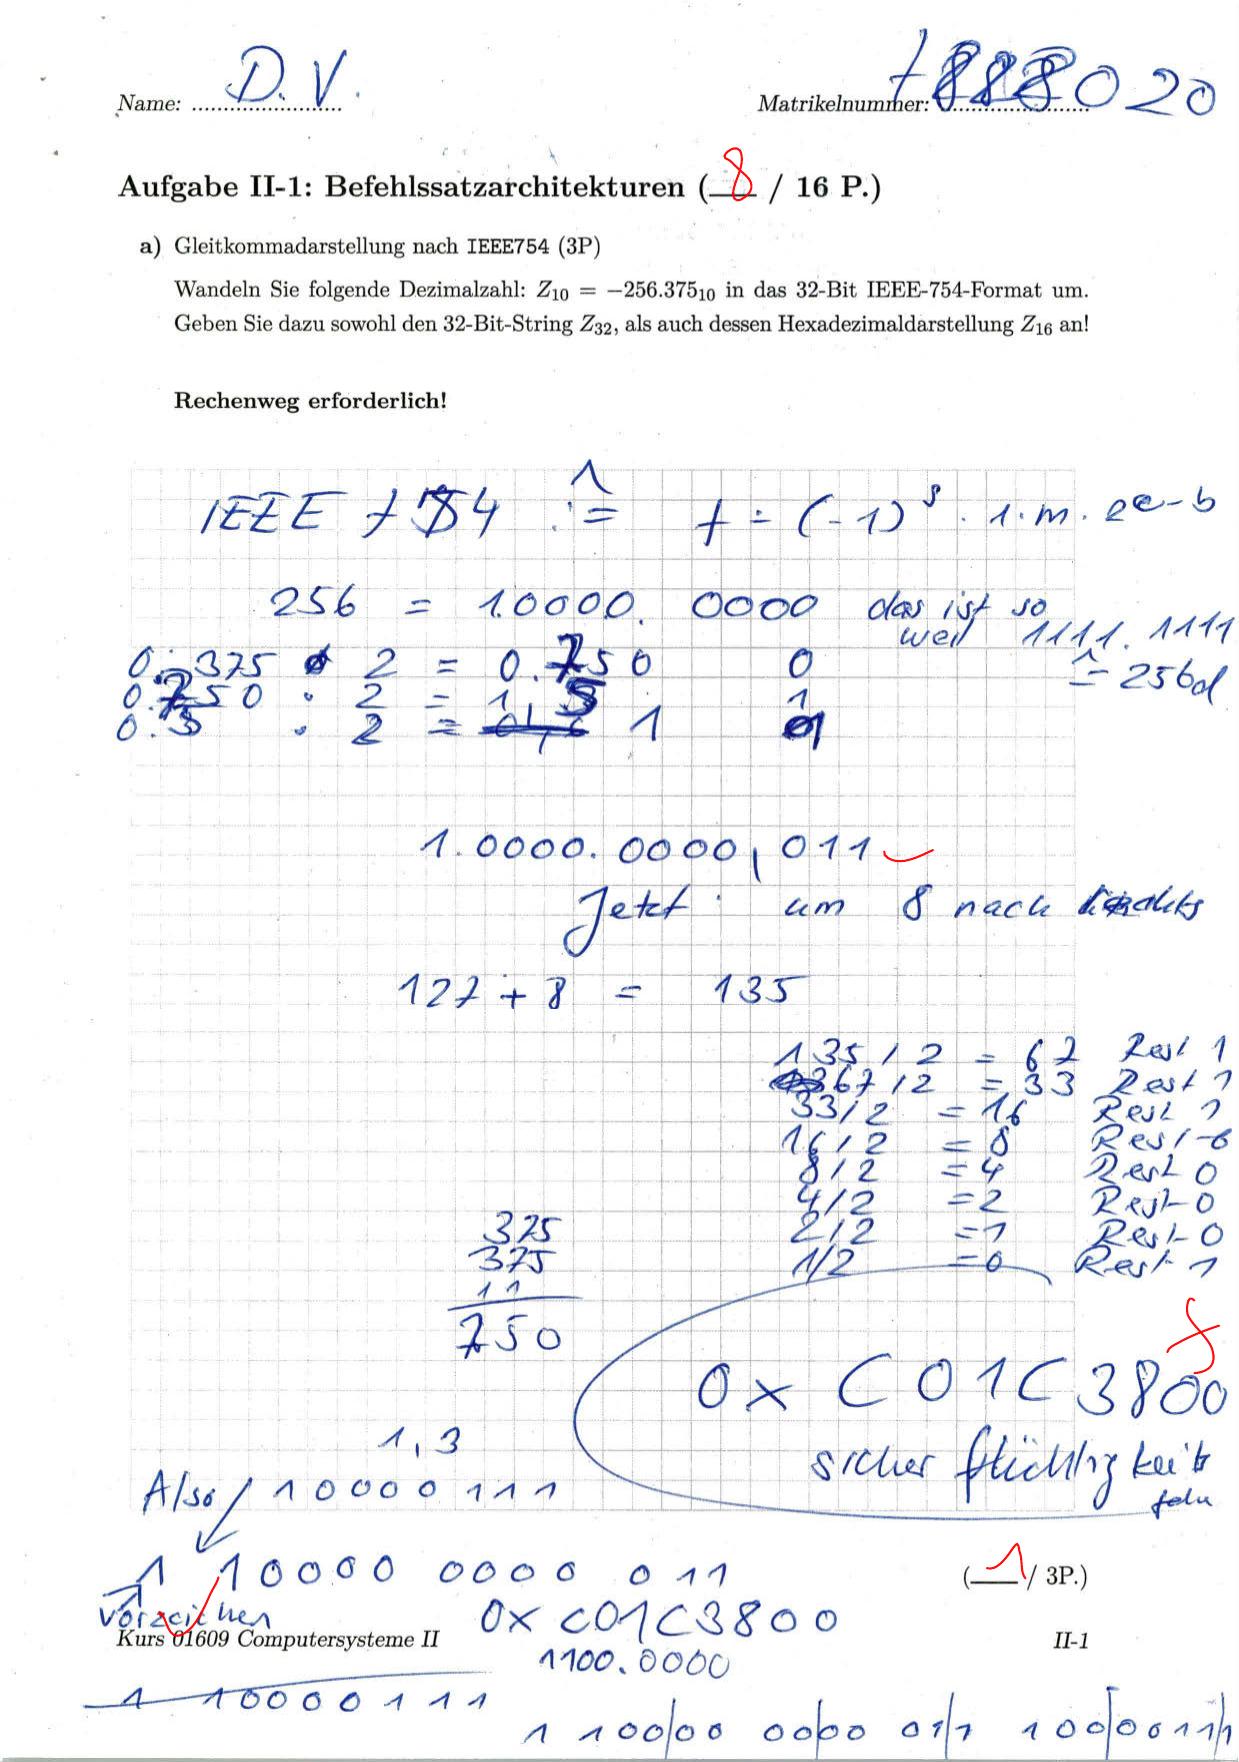 Name: D. V.
Matrikelnummer: 7888020
Aufgabe II-1: Befehlssatzarchitekturen (8 / 16 P.)
a) Gleitkommadarstellung nach IEEE754 (3P)
Wandeln Sie folgende Dezimalzahl: Z₁₀ = −256.375₁₀ in das 32-Bit IEEE-754-Format um.
Geben Sie dazu sowohl den 32-Bit-String Z₃₂, als auch dessen Hexadezimaldarstellung Z₁₆ an!
Rechenweg erforderlich!
IEEE 754 ≙ f = (-1)^s · 1.m · 2^e-b
256 = 1.0000. 0000 das ist so
weil 1111.1111
≙ 256d
0.375 · 2 = 0.750 0
0.750 · 2 = 1.5 1
0.5 · 2 = 1 1
1.0000.0000,011
Jetzt: um 8 nach rechts
127 + 8 = 135
135 / 2 = 67 Rest 1
67 / 2 = 33 Rest 1
33 / 2 = 16 Rest 1
16 / 2 = 8 Rest 0
8 / 2 = 4 Rest 0
4 / 2 = 2 Rest 0
2 / 2 = 1 Rest 0
1/2 = 0 Rest 1
375
375
11
750
0x C01C3800
sicher flüchtigkeits
1,3
Also 10000111
1 10000 0000 011
(1 / 3P.)
Vorzeichen
0x C01C3800
Kurs 01609 Computersysteme II
II-1
1100.0000
1 10000111
1 100|00 00|00 01|1 100|0011|1